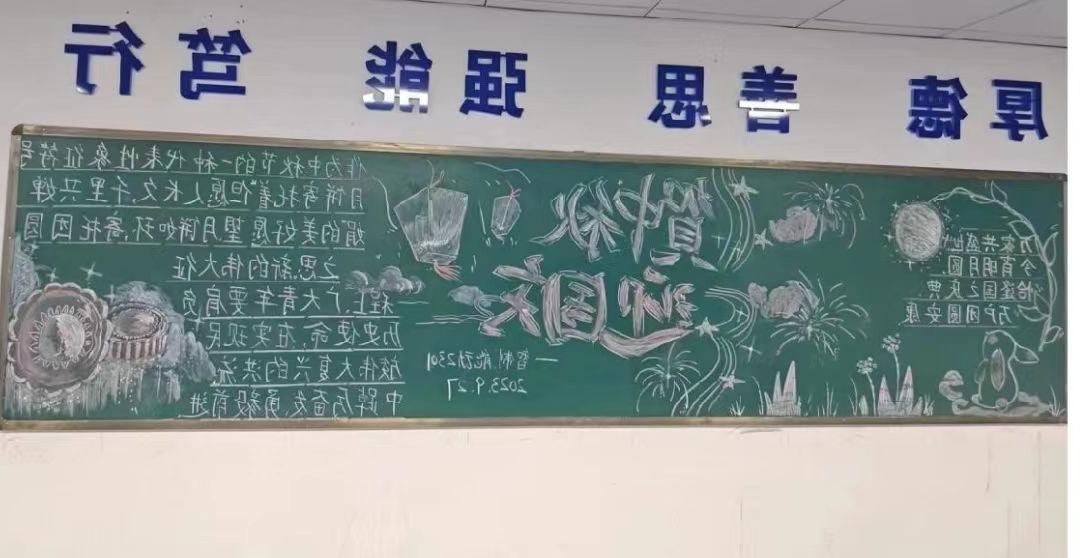 厚德 善思 强能 笃行
万家共盛世
今宵明月圆
恰逢国之庆典,
万户团圆安康
贺中秋
迎国庆
一智制能动2301
2023.9.27
作为中秋节的一种代表性象征符号
月饼寄托着“但愿人长久,千里共婵
娟的美好愿望,月饼如环,寄托团圆
之思,新的伟大征
程上广大青年要肩负
历史使命,在实现民
族伟大复兴的洪流
中踔厉奋发,勇毅前进